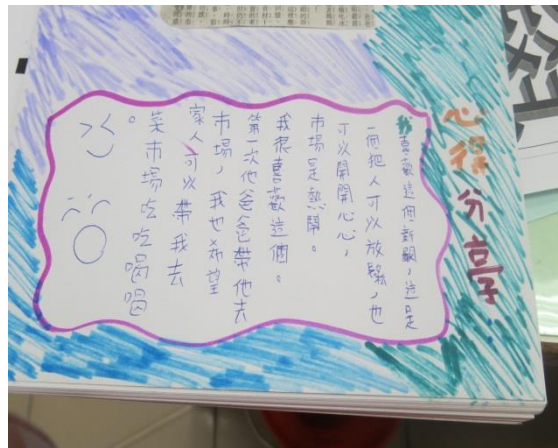 心得分享
我喜歡這個新聞，這是
一個把人可以放鬆，也
可以開開心心，
市場是熱鬧。
我很喜歡這個。
第一次他爸爸帶他去
市場，我也希望
家人可以帶我去
菜市場吃吃喝喝
。